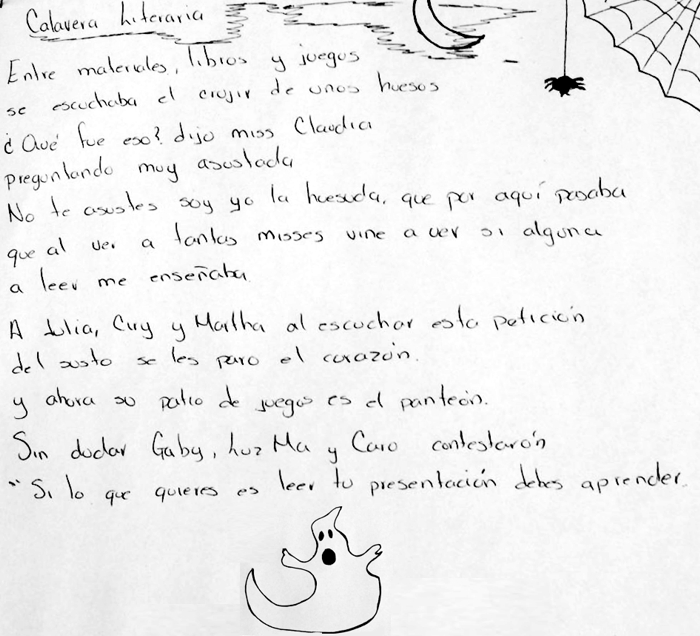 Calavera Literaria
Entre materiales, libros y juegos
se escuchaba el crujir de unos huesos
¿Qué fue eso? dijo miss Claudia
preguntando muy asustada
No te asustes soy yo la huesuda, que por aquí pasaba
que al ver a tantas misses vine a ver si alguna
a leer me enseñaba.
A Lilia, Cuy y Martha al escuchar esta petición
del susto se les paro el corazón.
y ahora su patio de juegos es el panteón.
Sin dudar Gaby, Luz Ma y Caro contestarón
"Si lo que quieres es leer tu presentación debes aprender.